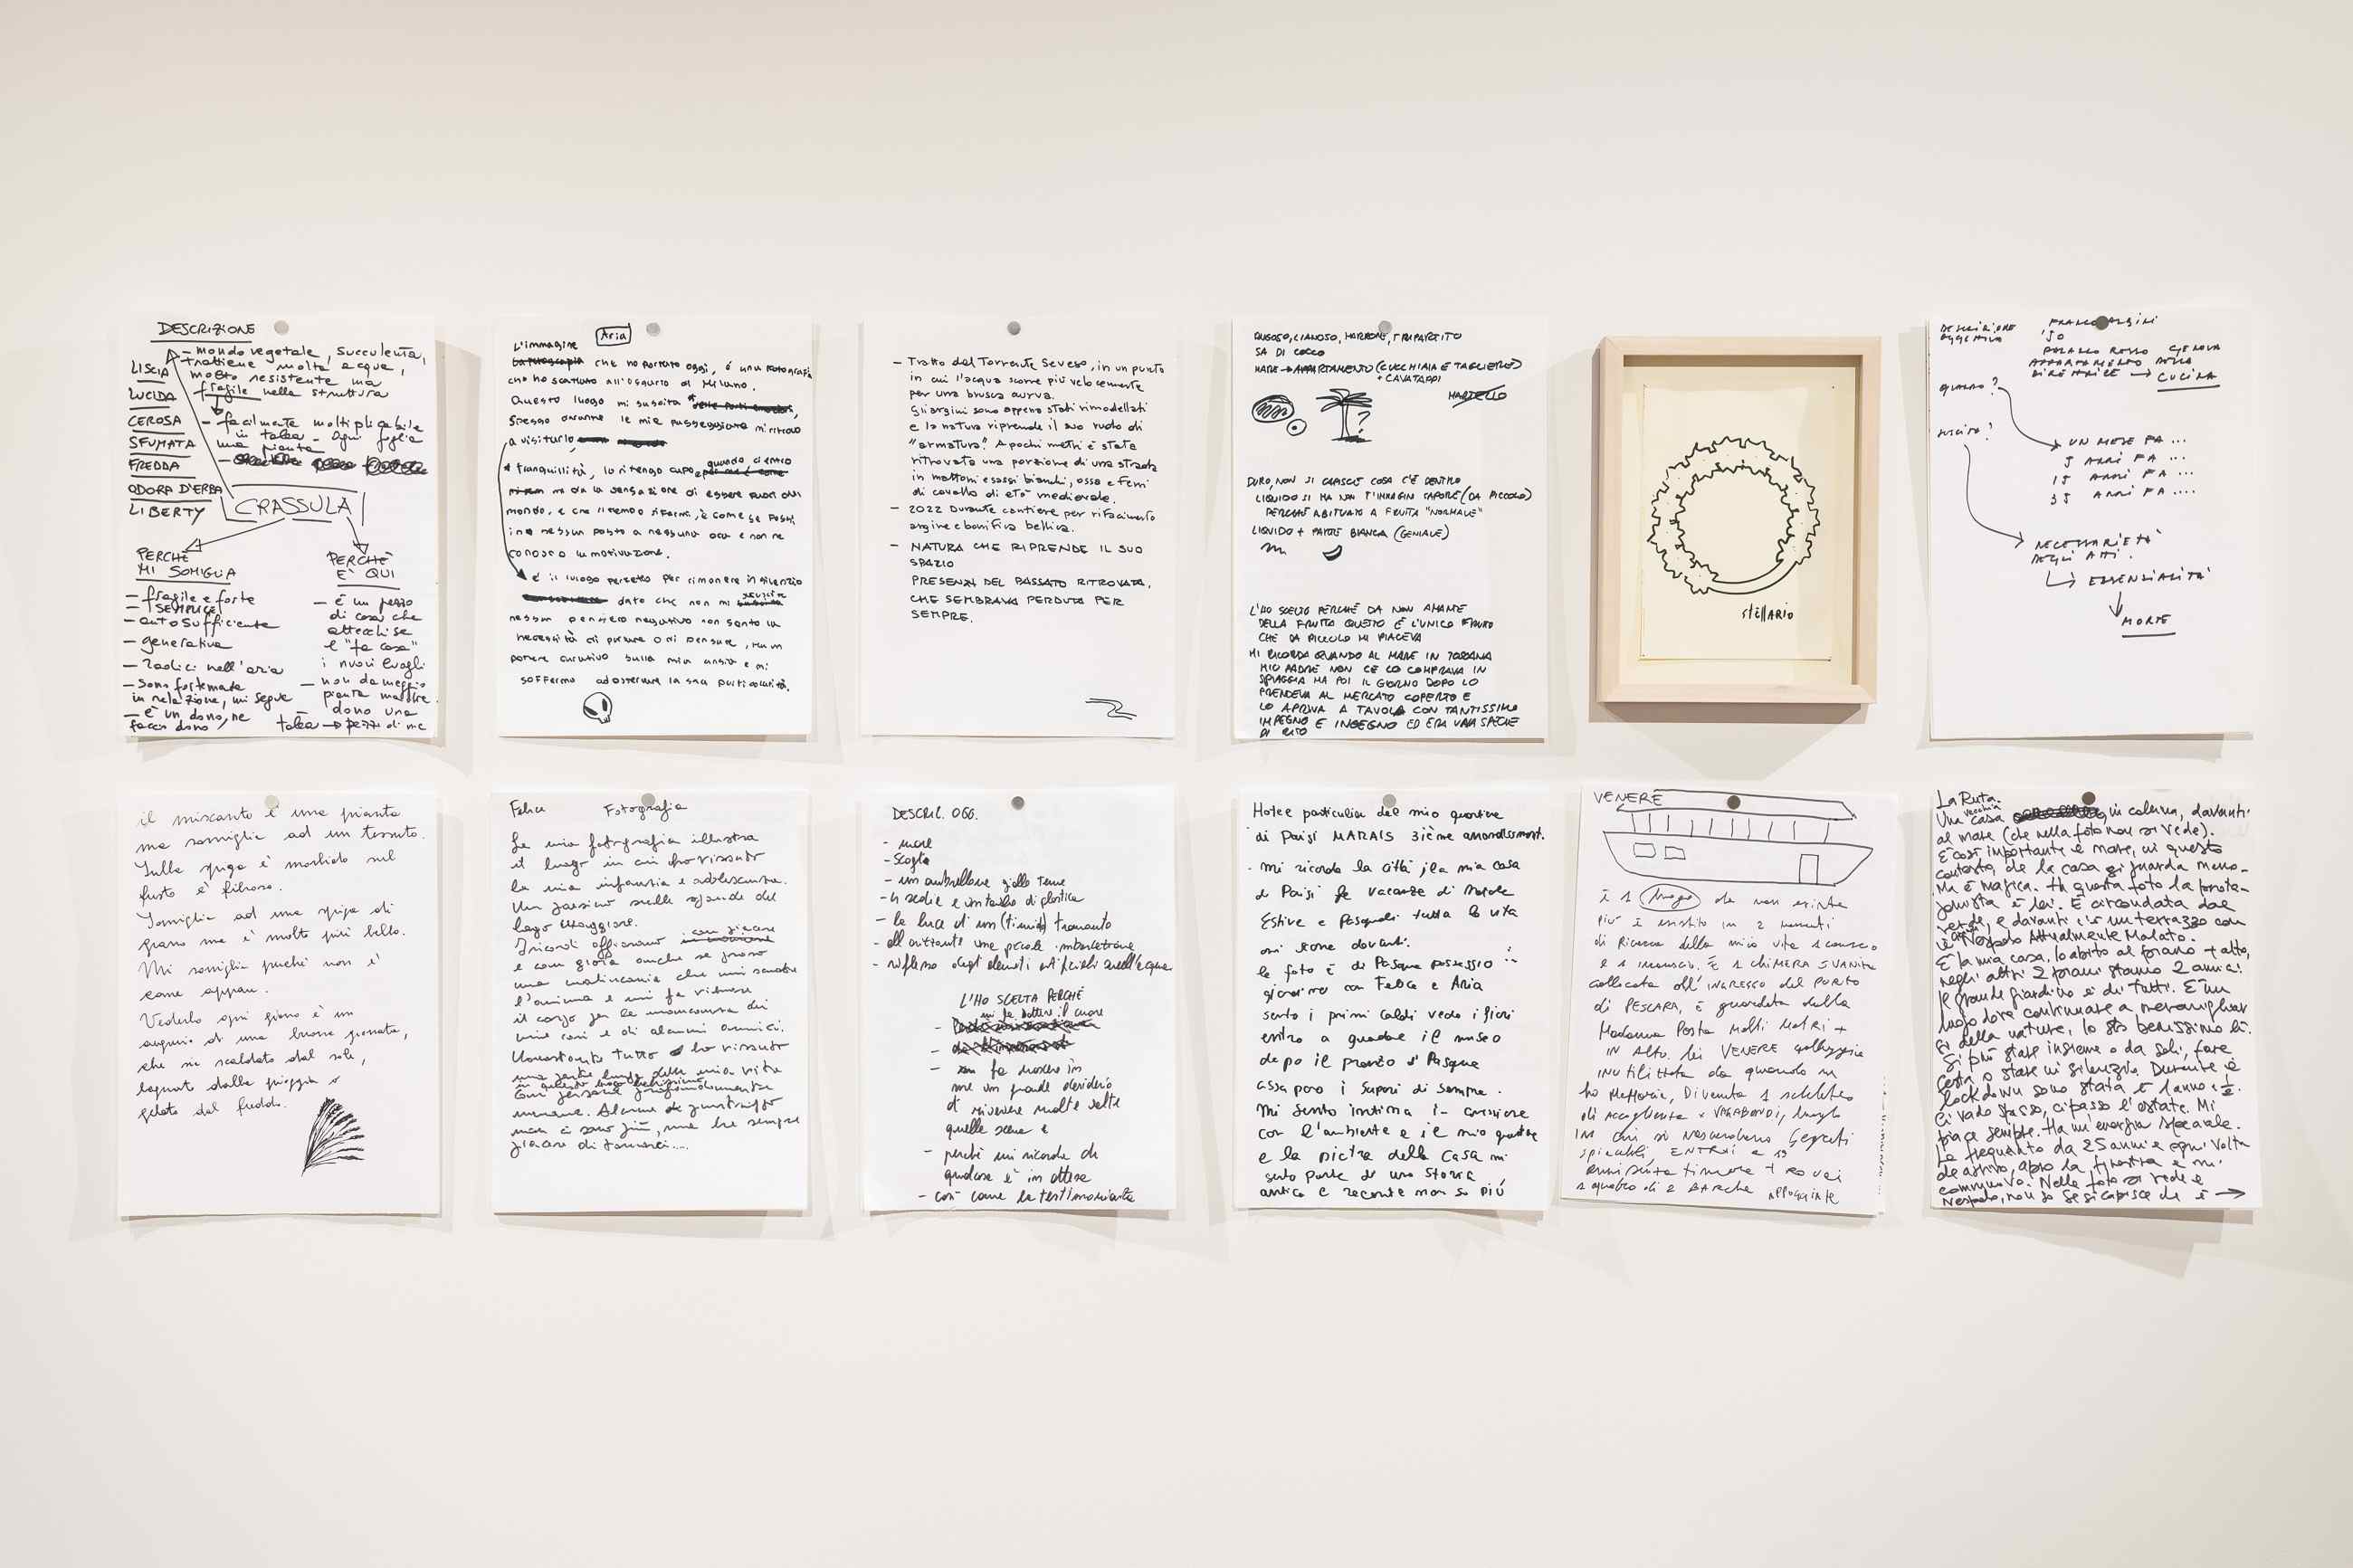 DESCRIZIONE
– mondo vegetale, succulenta,
trattiene molta acqua,
molto resistente ma
fragile nella struttura
– facilmente moltiplicabile
in talea – ogni foglia
una pianta
LISCIA
LUCIDA
CEROSA
SFUMATA
FREDDA
ODORA D'ERBA
LIBERTY
CRASSULA
PERCHÈ
MI SOMIGLIA
– fragile e forte
– SEMPLICE
– autosufficiente
– generativa
– radici nell'aria
– sono fortemente
in relazione, mi segue
– è un dono, ne
faccio dono
PERCHÈ
È QUI
– è un pezzo
di casa che
attecchisce
e "fa casa"
i nuovi luoghi
– non danneggio
pianta madre.
– dono una
talea → pezzi di me
Aria
L'immagine
che ho portato oggi, è una fotografia
che ho scattato all'ossario di Milano.
Questo luogo mi suscita
spesso durante le mie passeggiate mi ritrovo
a visitarlo
tranquillità, lo ritengo cupo, quando ci entro
mi da la sensazione di essere fuori dal
mondo, e che il tempo si fermi, è come se fossi
in nessun posto a nessuna ora e non ne
conosco la motivazione.
è il luogo perfetto per rimanere in silenzio
dato che non mi suscita
nessun pensiero negativo non sento la
necessità di parlare o di pensare, ha un
potere curativo sulla mia ansia e mi
soffermo ad osservare la sua particolarità.
– Tratto del Torrente Seveso, in un punto
in cui l'acqua scorre più velocemente
per una brusca curva.
Gli argini sono appena stati rimodellati
e la natura riprende il suo ruolo di
"armatura". A pochi metri è stata
ritrovata una porzione di una strada
in mattoni e sassi bianchi, ossa e ferri
di cavallo di età medievale.
– 2022 Durante cantiere per rifacimento
argine e bonifica bellica.
– NATURA CHE RIPRENDE IL SUO
SPAZIO
PRESENZA DEL PASSATO RITROVATA,
CHE SEMBRAVA PERDUTA PER
SEMPRE.
RUGOSO, LIGNOSO, MARRONE, TRIPARTITO
SA DI COCCO
MARE → APPARTAMENTO (CUCCHIAIA E TAGLIERE)
+ CAVATAPPI
MARTELLO
?
DURO, NON SI CAPISCE COSA C'È DENTRO
LIQUIDO SI MA NON T'IMMAGINI SAPORE (DA PICCOLO)
PERCHÉ ABITUATO A FRUTTA "NORMALE"
LIQUIDO + PARTE BIANCA (GENIALE)
L'HO SCELTO PERCHÉ DA NON AMANTE
DELLA FRUTTA QUESTO È L'UNICO FRUTTO
CHE DA PICCOLO MI PIACEVA
MI RICORDA QUANDO AL MARE IN TOSCANA
MIO PADRE NON CE LO COMPRAVA IN
SPIAGGIA MA POI IL GIORNO DOPO LO
PRENDEVA AL MERCATO COPERTO E
LO APRIVA A TAVOLA CON TANTISSIMO
IMPEGNO E INGEGNO ED ERA UNA SPECIE
DI RITO
STELLARIO
DESCRIZIONE
OGGETTIVA
FRANCO ALBINI
'50
PALAZZO ROSSO GENOVA
APPARTAMENTO DELLA
DIRETTRICE → CUCINA
QUANDO?
SUSCITA?
UN MESE FA ...
5 ANNI FA ...
15 ANNI FA ...
35 ANNI FA ....
NECESSARIETÀ
DEGLI ATTI.
ESSENZIALITÀ
MORTE
il miscanto è una pianta
ma somiglia ad un tessuto.
Sulla spiga è morbido sul
fusto è fibroso.
Somiglia ad una spiga di
grano ma è molto più bello.
Mi somiglia perché non è
come appare.
Vederlo ogni giorno è un
augurio di una buona giornata,
che sia scaldato dal sole,
bagnato dalla pioggia o
gelato dal freddo.
Felice Fotografia
La mia fotografia illustra
il luogo in cui ho vissuto
la mia infanzia e adolescenza.
Un paesino sulle sponde del
lago Maggiore.
Ricordi affiorano con piacere
e con gioia anche se provo
una malinconia che mi scuote
l'anima e mi fa vibrare
il corpo per la mancanza dei
miei cari e di alcuni amici.
Nonostante tutto ho vissuto
una parte lunga della mia vita
in questo luogo bellissimo
con persone profondamente
umane. Alcune di quest'oggi
non ci sono più, ma ho sempre
piacere di tornarci....
DESCRIZ. OGG.
- mare
- scoglio
- un ombrellone giallo tenue
- 4 sedie e un tavolo di plastica
- la luce di un (timido) tramonto
- all'orizzonte una piccola imbarcazione
- riflesso degli elementi artificiali sull'acqua
L'HO SCELTA PERCHÉ
mi fa battere il cuore
- fa nascere in
me un grande desiderio
di rivivere molte volte
quelle scene e
- perché mi ricorda che
qualcosa è in attesa
- così come la testimonianza
Hotel particulier del mio quartiere
di Parigi MARAIS 3ième arrondissement.
- mi ricorda la città, la mia casa
di Parigi le vacanze di Natale
Estive e Pasquali tutta la vita
la foto è di Pasqua
giorno con Felice e Aria
sento i primi caldi vedo i fiori
entro a guardare il museo
dopo il pranzo di Pasqua
assaporo i sapori di sempre.
Mi sento intima in connessione
con l'ambiente e il mio quartiere
e la pietra della casa mi
sento parte di una storia
antica e recente non so più
VENERE
È 1 luogo che non esiste
più è esistito in 2 momenti
di Ricerca della mia vita 1 conscio
e 1 inconscio. È 1 CHIMERA SVANITA
collocata all'INGRESSO del PORTO
di PESCARA, È guardata dalla
Madonna Posta Molti Metri +
IN Alto. lei VENERE galleggia
INUTILIZZATA da quando ne
ho Memoria, Diventa 1 scheletro
di Accoglienza x VAGABONDI, luogo
IN cui si nascondono Segreti
spiccioli, ENTRAI a 19
anni senza timore
1 quadro di 2 BARCHE appoggiate
La Ruta.
Una vecchia casa in collina, davanti
al mare (che nella foto non si vede).
È così importante il mare, in questo
contesto, che la casa si guarda meno.
Ma è magica. In questa foto la prota-
gonista è lei. È circondata dal
verde, e davanti c'è un terrazzo con
un Nespolo Attualmente Malato.
È la mia casa, io abito al piano + alto,
negli altri 2 piani stanno 2 amici.
Il grande giardino è di tutti. È un
luogo dove continuare a meravigliar
si della natura, io sto benissimo lì.
Si può stare insieme o da soli, fare
festa o stare in silenzio. Durante il
lockdown sono stata lì 1 anno e ½.
Ci vado spesso, ci passo l'estate. Mi
piace sempre. Ha un'energia speciale.
La frequento da 25 anni e ogni volta
che arrivo, apro la finestra e mi
commuovo. Nella foto si vede il
Nespolo, non so se si capisce che è →